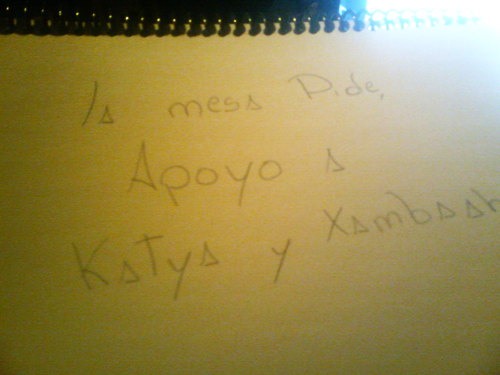 la mesa Pide,
Apoyo a
Katya y Xambaah